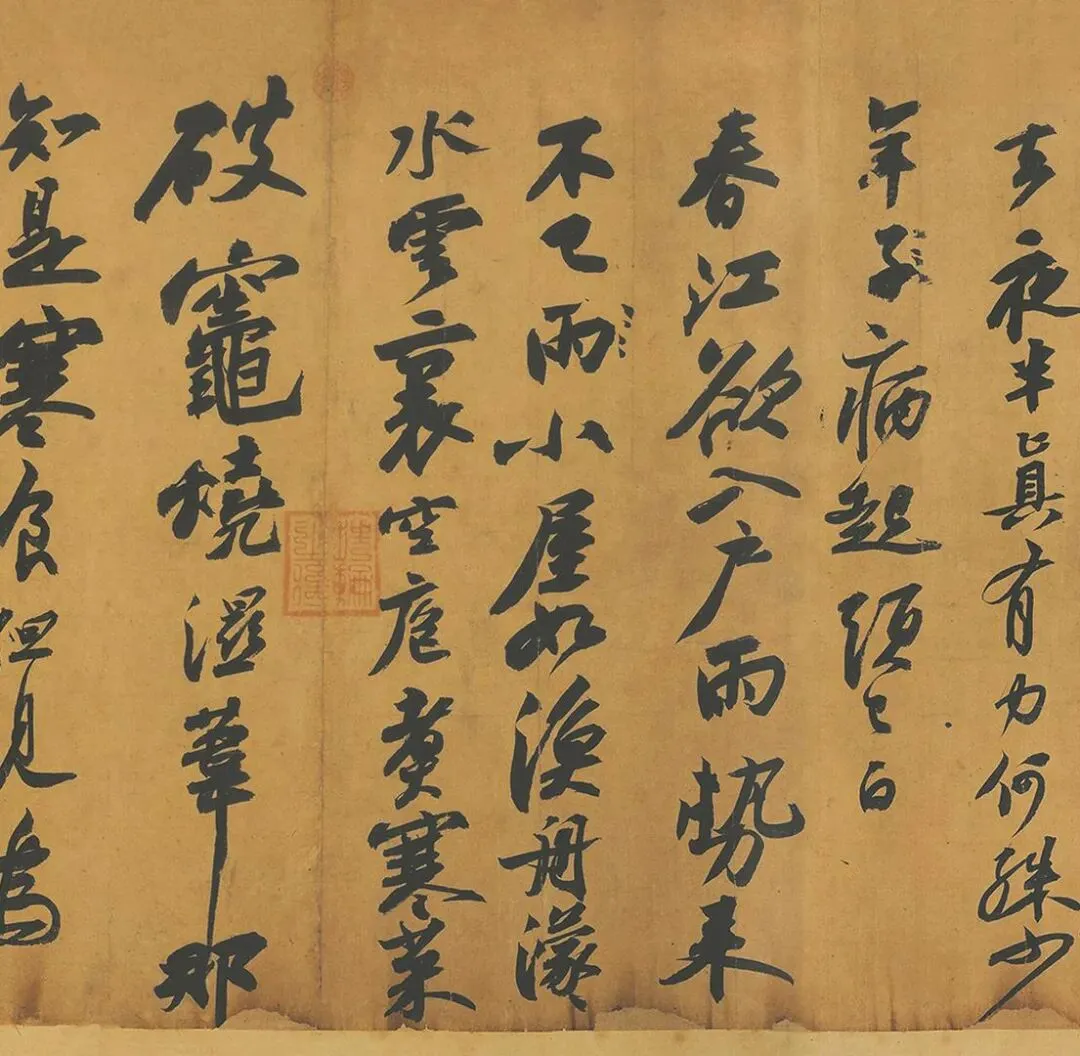 去夜半眞有力何殊少
年子病起頭已白
春江欲入戶雨勢來
不已雨小屋如漁舟濛〻
水雲裏空庖煮寒菜
破竈燒濕葦那
知是寒食但見烏
埋輪之後